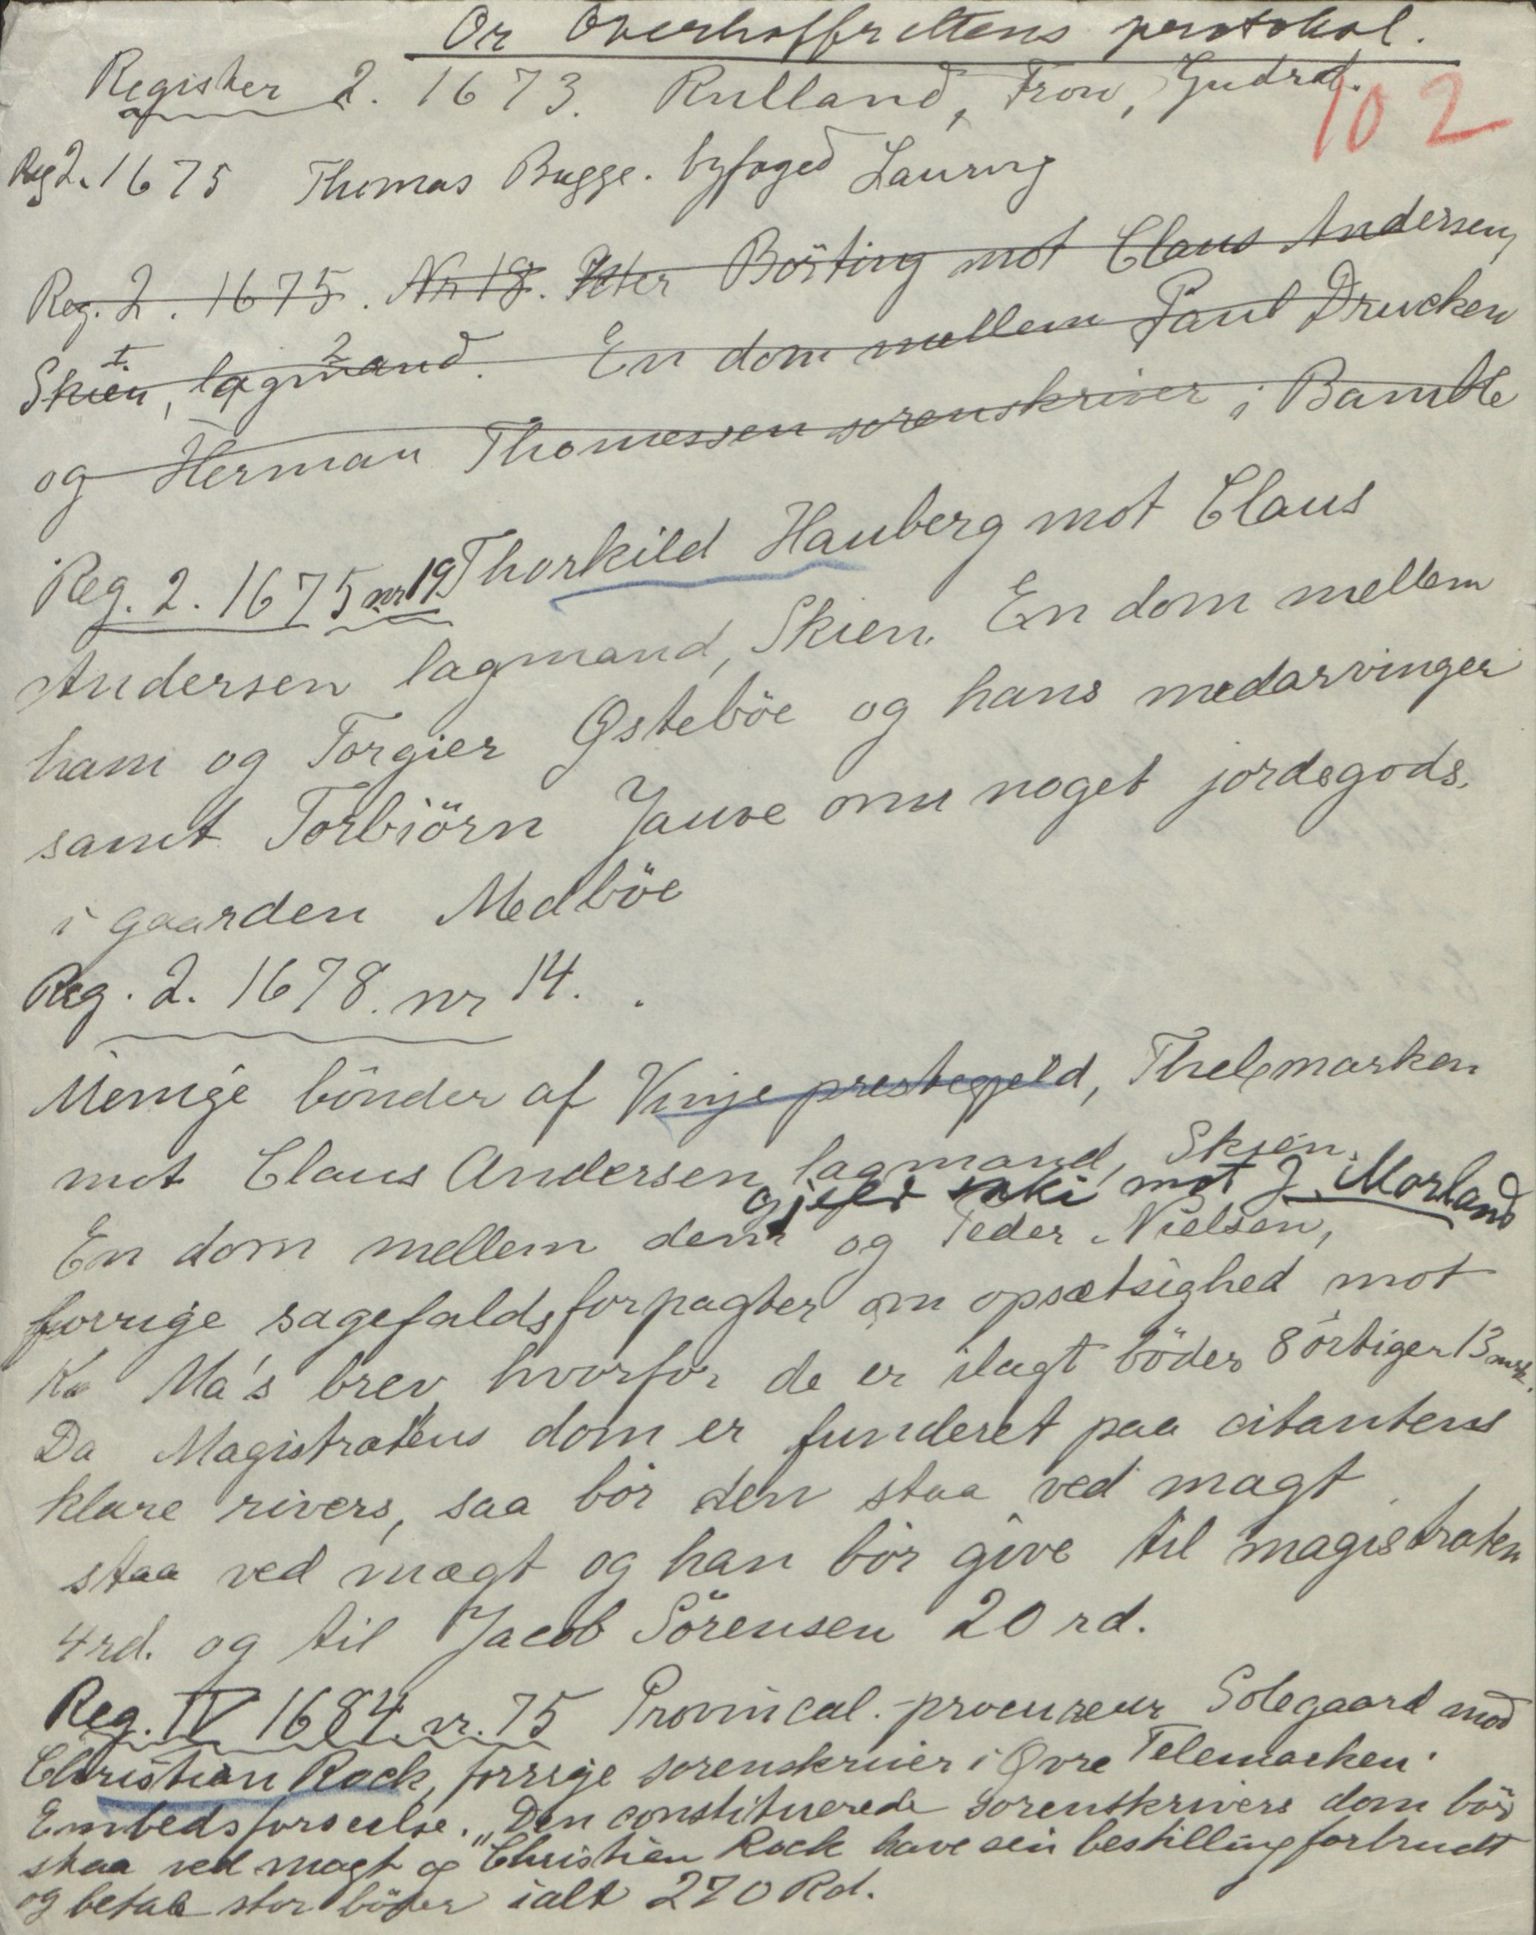 Or Overhoffrettens protokol.
102
Register 2. 1673. Rulland, Fron, Gudrd.
Reg 2. 1675 Thomas Bugge. byfoged Laurvig
Reg. 2. 1675. Nr 18. Peter Börting mot Claus Andersen,
Skien, lagmand. En dom mellem Paul Drucken
og Herman Thomessen sorenskriver i Bamble
Reg. 2. 1675 nr 19. Thorkild Hauberg mot Claus
Andersen lagmand, Skien. En dom mellem
ham og Torgier Østeböe og hans medarvinger
samt Torbiörn Jauve om noget jordegods.
i gaarden Medböe
Reg. 2. 1678. nr 14.
Menige bönder af Vinje prestegjeld, Thelemarken
mot Claus Andersen lagmand, Skien.
gjelder ikki mot J. Morland
En dom mellem dem og Peder Nielsen,
forrige sagefaldsforpagter om opsætsighed mot
Ko Ma's brev hvorfor de er ilagt böder 8 örtiger 13 mrk.
Da Magistratens dom er funderet paa citantens
klare rivers, saa bör den staa ved magt
staa ved magt og han bör give til magistraten
4 rd. og til Jacob Sörensen 20 rd.
Reg. IV 1684 nr. 75 Provincal-procureur Solegaard mod
Christian Rock, forrige sorenskriver i Øvre Telemarken.
Embedsforseelse. "Den constituerede sorenskrivers dom bör
staa ved magt og Christian Rock have sin bestilling forbrudt
og betale stor böter ialt 270 Rd.